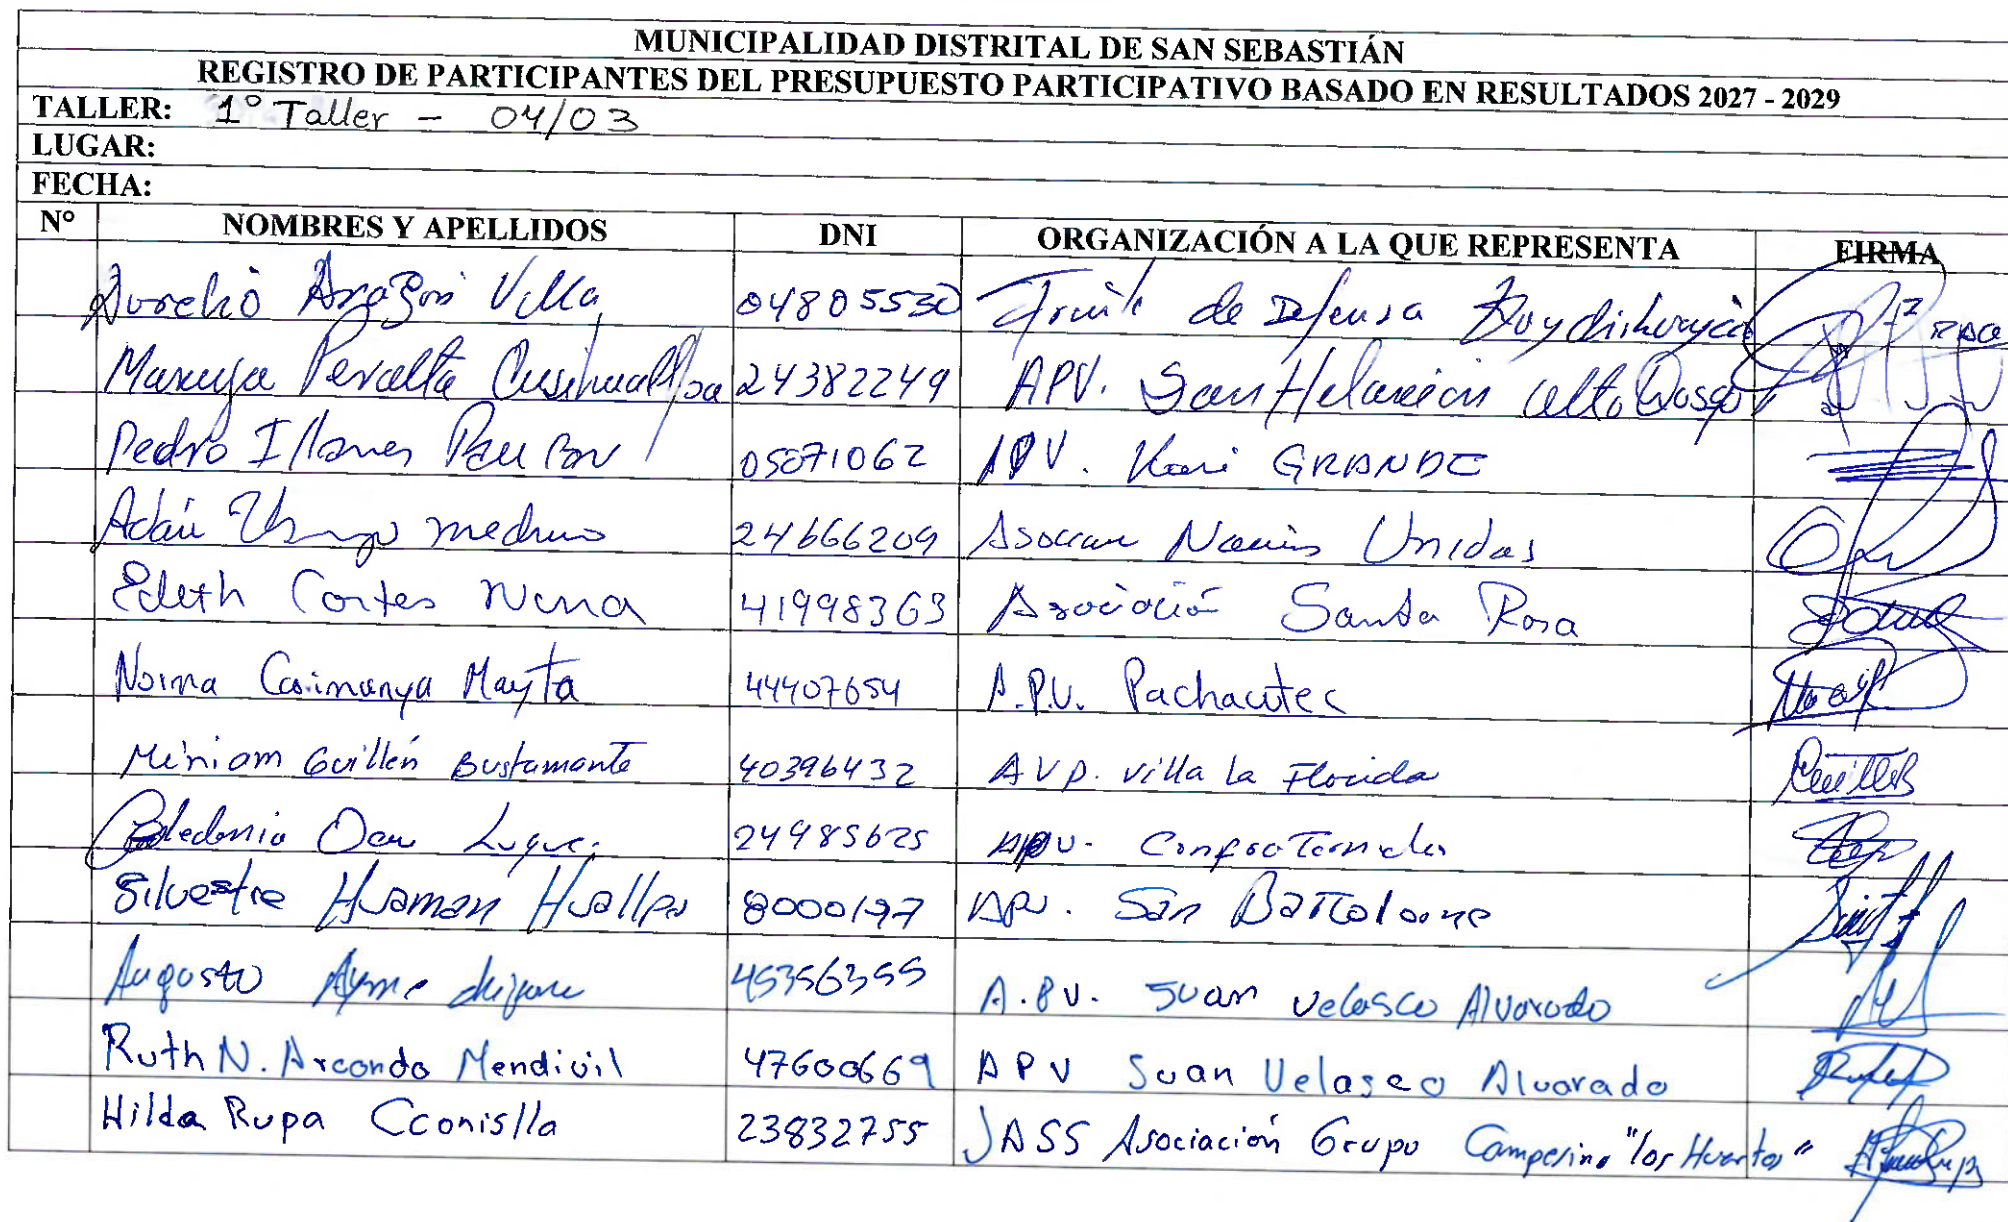 MUNICIPALIDAD DISTRITAL DE SAN SEBASTIÁN
REGISTRO DE PARTICIPANTES DEL PRESUPUESTO PARTICIPATIVO BASADO EN RESULTADOS 2027 - 2029
TALLER: 1° Taller - 04/03
LUGAR:
FECHA:
N° NOMBRES Y APELLIDOS DNI ORGANIZACIÓN A LA QUE REPRESENTA FIRMA
Aurelio Villa 04805530 de Defensa
Maruja Peralta Cusihuallpa 24382249 APV. San alto Qosqo
Pedro Illanes 05071062 APV. GRANDE
Adán 24666209 Unidas
Edith Cortes Nina 41998363 Asociació Santa Rosa
Norma Casimanya Mayta 44407654 A.P.V. Pachacutec
Miriam Guillén Bustamante 40396432 AVP. Villa la Florida
Luque 24985625 APV.
Silvestre Huaman Huallpa 8000197 APV. San Bartolome
Augusto Ayme 45356355 A.P.V. Juan Velasco Alvarado
Ruth N. Arcondo Mendivil 47600669 APV Juan Velasco Alvarado
Hilda Rupa Cconislla 23832755 JASS Asociación Grupo Campesino "los Huertos"